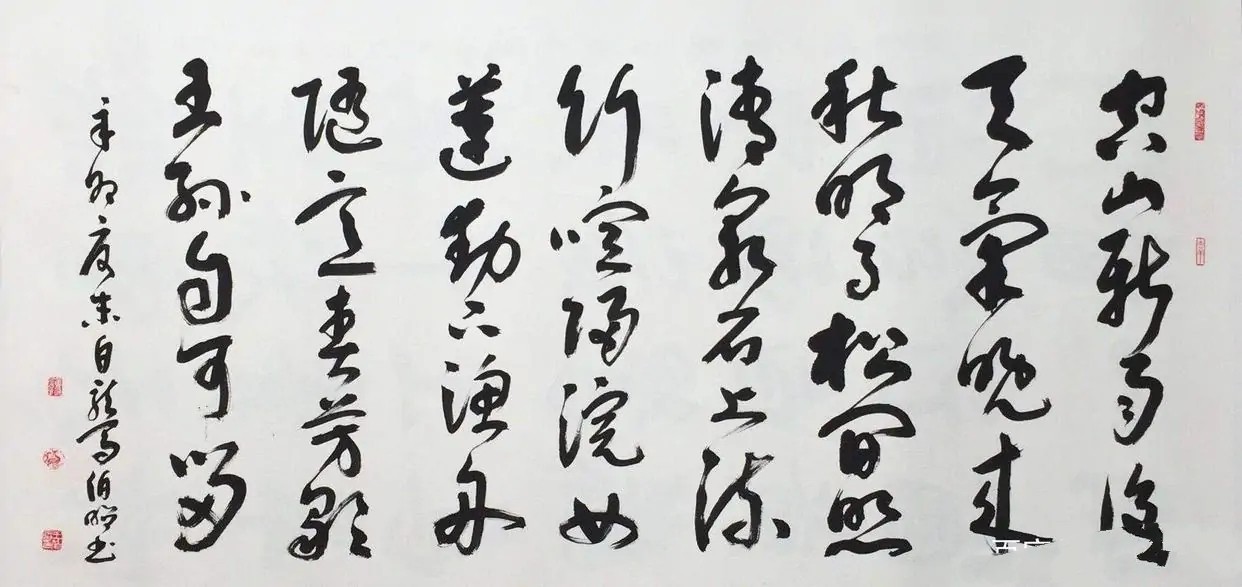 空山新雨後
天氣晚來
秋明月松間照
清泉石上流
竹喧歸浣女
蓮動下漁舟
隨意春芳歇
王孫自可留
辛卯夏 白龍 伯 书